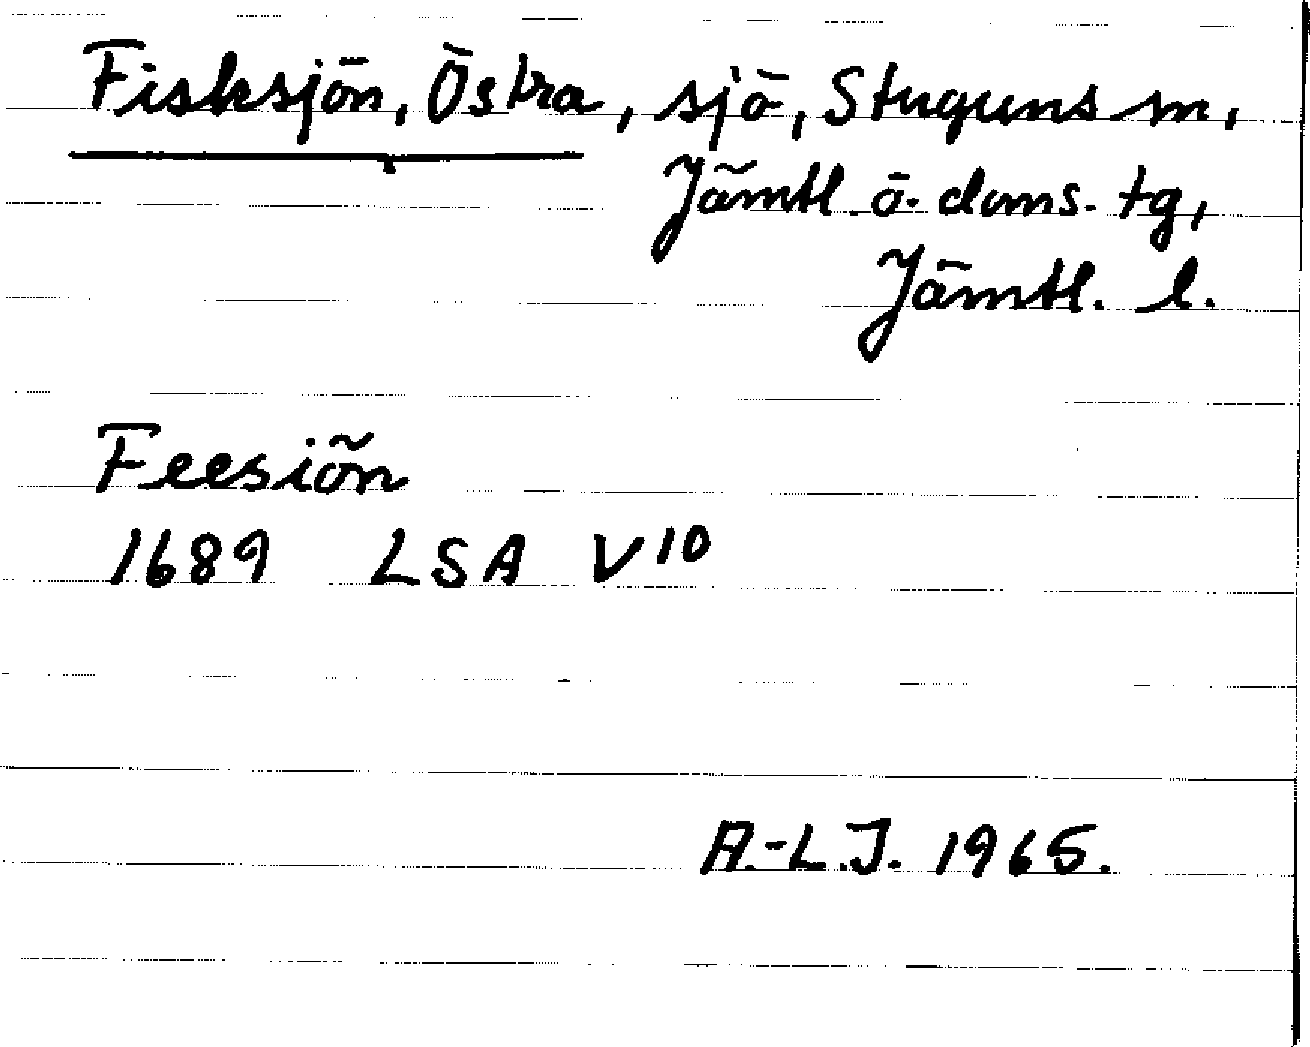 Fisksjön, Östra, sjö, Stuguns sn,
Jämtl. ö. doms. tg,
Jämtl. l.
Feesiön
1689 LSA V10
A.-L.J. 1965.